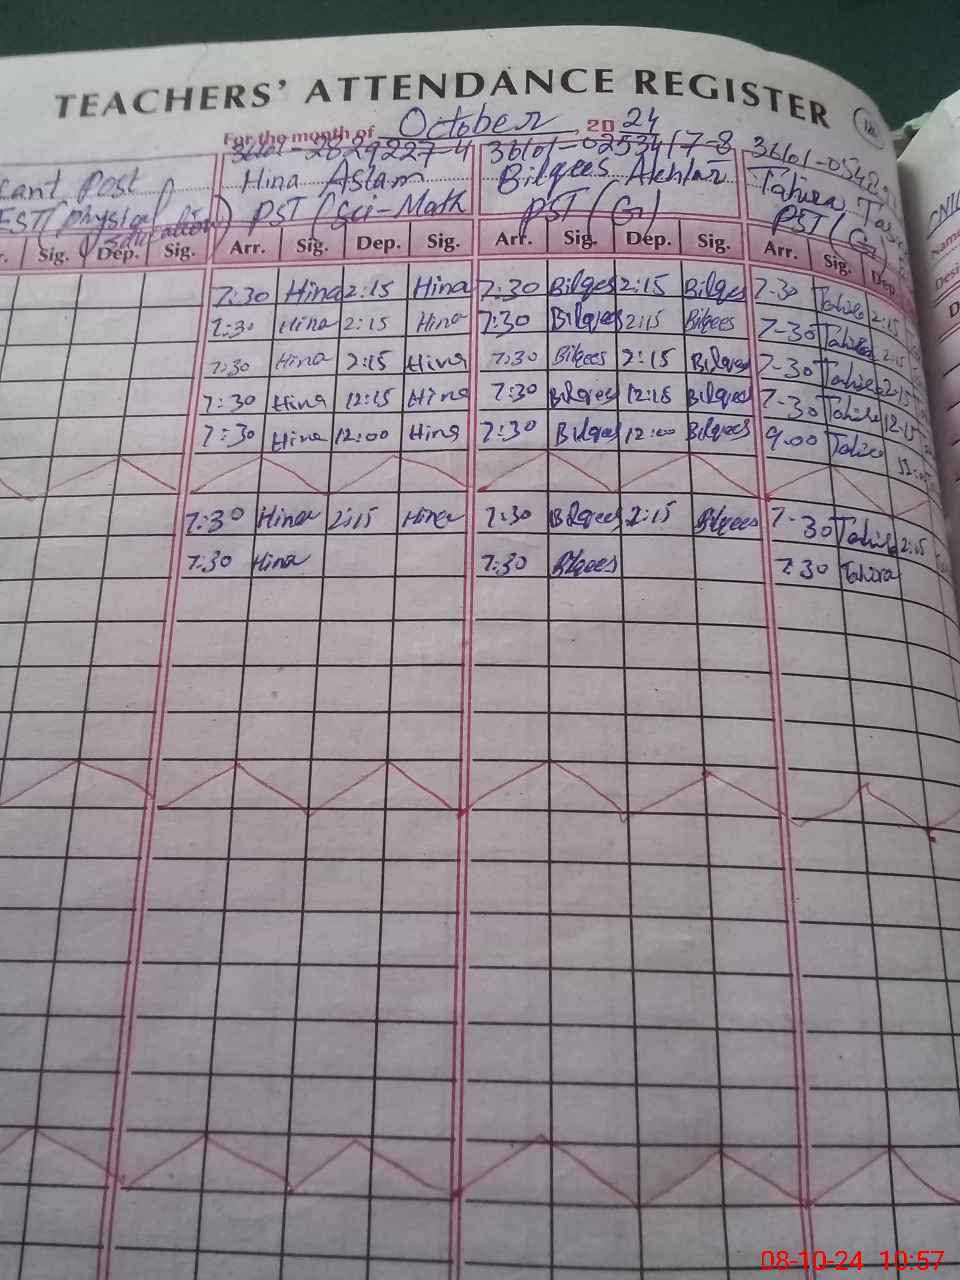 TEACHERS' ATTENDANCE REGISTER
For the month of October, 20 24
36101-2829227-4 36101-0253417-8 36101-0548
cant Post Hina Aslam Bilqees Akhtar Tahira
EST (Physical Education) PST (Sci-Math PST (G) PST (G)
r. Sig. Dep. Sig. Arr. Sig. Dep. Sig. Arr. Sig. Dep. Sig. Arr. Sig. Dep.
7:30 Hina 2:15 Hina 7:30 Bilqees 2:15 Bilqees 7-30 Tahira 2:15
7:30 Hina 2:15 Hina 7:30 Bilqees 2:15 Bilqees 7-30 Tahira 2:15
7:30 Hina 2:15 Hina 7:30 Bilqees 2:15 Bilqees 7-30 Tahira 2:15
7:30 Hina 12:15 Hina 7:30 Bilqees 12:15 Bilqees 7-30 Tahira 12-15
7:30 Hina 12:00 Hina 7:30 Bilqees 12:00 Bilqees 9.00 Tahira
7:30 Hina 2:15 Hina 7:30 Bilqees 2:15 Bilqees 7-30 Tahira 2:15
7:30 Hina 7:30 Bilqees 7:30 Tahira
CNIC
Name
Desi
D
08-10-24 10:57